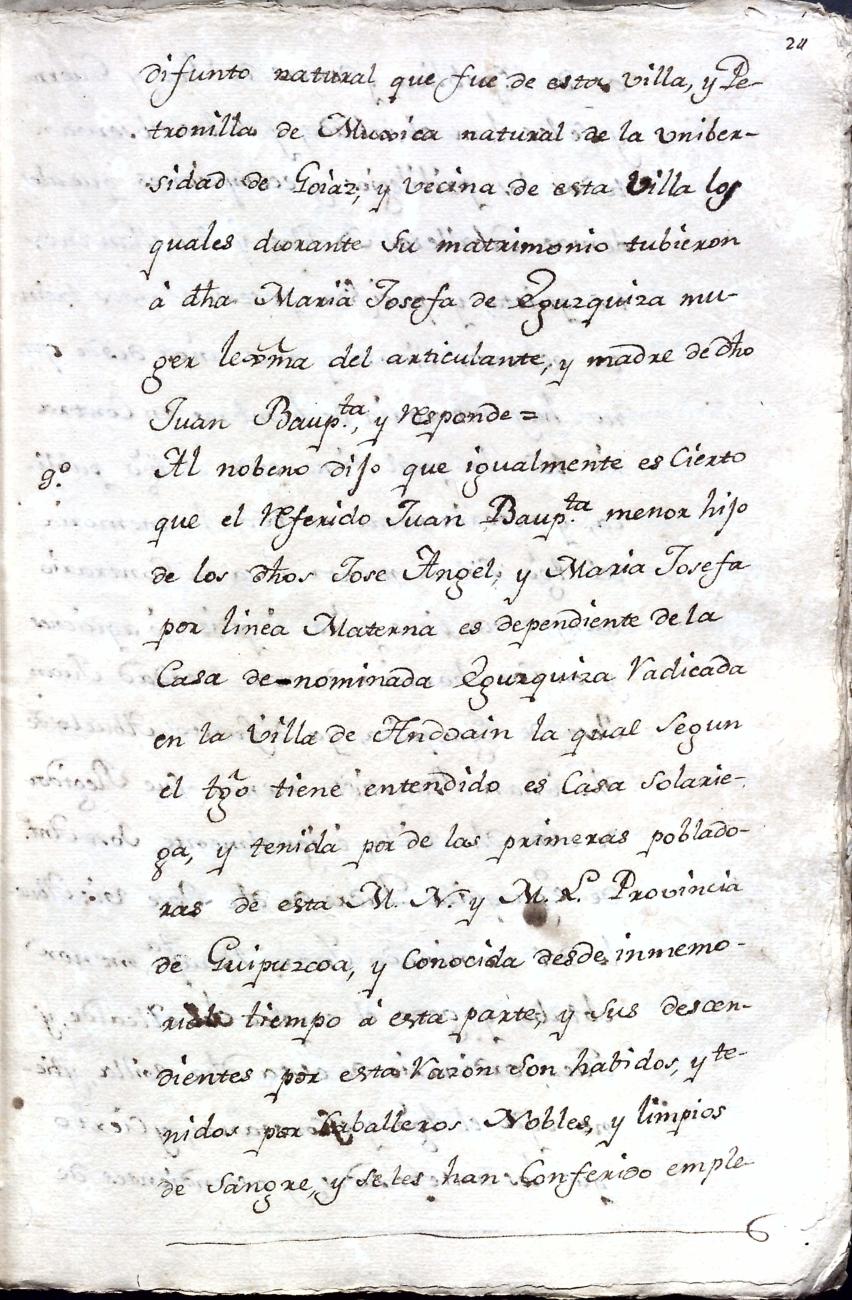 24
difunto natural que fue de esta villa, y Pe-
tronilla de Muxica natural de la vniber-
sidad de Goiaz, y vecina de esta Villa los
quales durante su matrimonio tubieron
à dha Maria Josefa de Egurquiza mu-
ger lexma del articulante, y madre de dho
Juan Baupta, y Responde =
9º Al nobeno dijo que igualmente es Cierto
que el Referido Juan Baupta menor hijo
de los dhos Jose Angel, y Maria Josefa
por linea Materna es dependiente de la
Casa de-nominada Egurquiza Radicada
en la Villa de Andoain la qual segun
el tgo tiene entendido es Casa solarie-
ga, y tenida por de las primeras poblado-
ras de esta M. N. y M. L. Provincia
de Guipuzcoa, y Conocida desde inmemo-
rial tiempo à esta parte, y sus descen-
dientes por esta Razon son habidos, y te-
nidos por Caballeros Nobles, y limpios
de Sangre, y se les han Conferido emple-